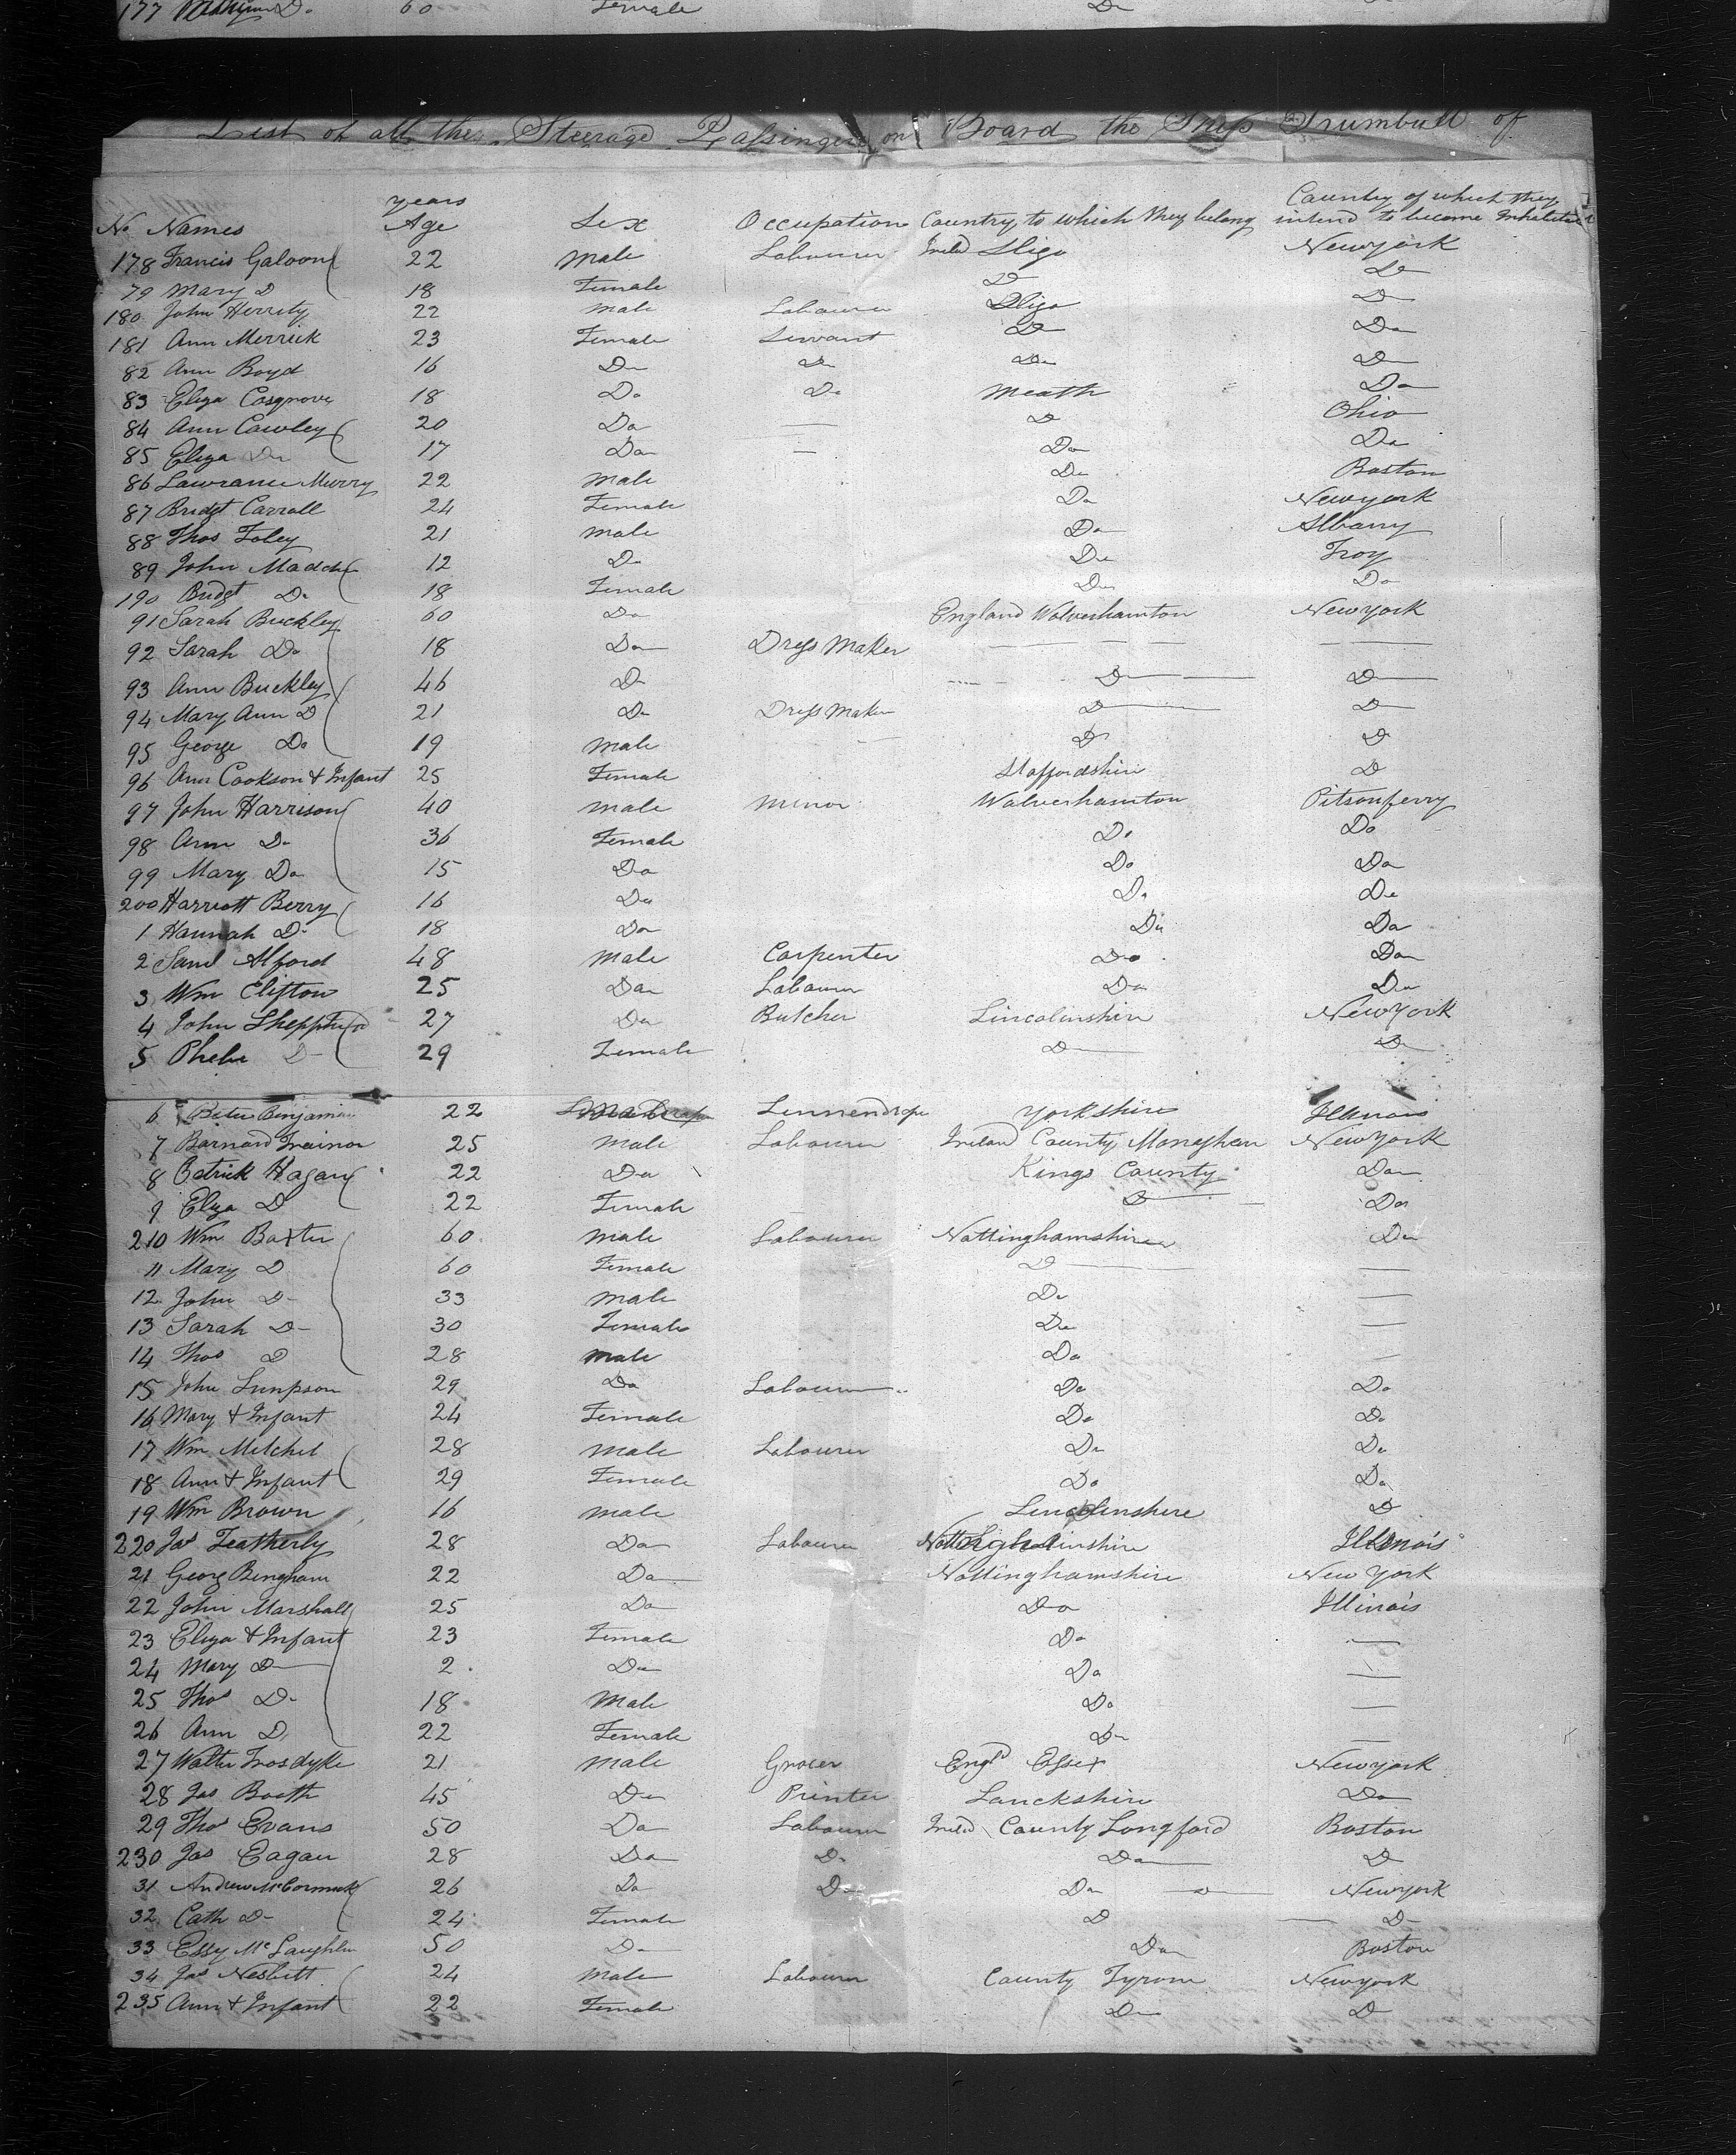 177 Do 60 Female Do
List of all the Steerage Passingers on Board the Ship Trumbull of
No Names years Age Sex Occupation Country to which they belong Country of which they intend to become Inhabitants
178 Francis Galoon 22 Male Labourer Ireld Sligo Newyork
79 Mary D 18 Female D Do
180 John Herrity 22 Male Labourer Sligo Do
181 Ann Merrick 23 Female Servant Do Do
82 Ann Boyd 16 Do Do Do Do
83 Eliza Cosgrove 18 Do Do Meath Do
84 Ann Cawley 20 Do — D Ohio
85 Eliza Do 17 Do — Do Do
86 Lawrance Murry 22 Male Do Boston
87 Bridgt Carroll 24 Female Do Newyork
88 Thos Foley 21 Male Do Albany
89 John Madden 12 Do Do Troy
190 Bridgt Do 18 Female Do Do
91 Sarah Buckley 60 Do England Wolverhamton Newyork
92 Sarah Do 18 Do Dress Maker — —
93 Ann Buckley 46 Do Do Do
94 Mary Ann D 21 Do Dress Maker D D
95 George Do 19 Male — Do D
96 Ann Cookson & Infant 25 Female Staffordshire D
97 John Harrison 40 Male Minor Wolverhamton Pitsonferry
98 Ann Do 36 Female Do Do
99 Mary Do 15 Do Do Do
200 Harriott Berry 16 Do Do Do
1 Hannah D 18 Do Do Do
2 Saml Alford 48 Male Carpenter Do Do
3 Wm Clifton 25 Do Labourer Do Do
4 John Shepphard 27 Do Butcher Lincolinshire Newyork
5 Phebe D 29 Female D Do
6 Peter Benjamin 22 Male Linnendraper Yorkshire Illinois
7 Barnard Trainor 25 Male Labourer Ireland County Monaghan Newyork
8 Patrick Hagan 22 Do Kings County Do
9 Eliza D 22 Female D Do
210 Wm Baxter 60 Male Labourer Nottinghamshire Do
11 Mary D 60 Female D —
12 John D 33 Male Do —
13 Sarah D 30 Female Do —
14 Thos D 28 Male Do —
15 John Simpson 29 Do Labourer Do Do
16 Mary & Infant 24 Female Do Do
17 Wm Mitchel 28 Male Labourer Do Do
18 Ann & Infant 29 Female Do Do
19 Wm Brown 16 Male Lincolinshire D
220 Jas Featherly 28 Do Labourer Illinois
21 Georg Bingham 22 Do Nottinghamshire New York
22 John Marshall 25 Do Do Illinois
23 Eliza & Infant 23 Female Do —
24 Mary D 2 Do Do —
25 Thos D 18 Male Do —
26 Ann D 22 Female Do —
27 Walter Trosdyke 21 Male Grocer Engld Essex Newyork
28 Jas Booth 45 Do Printer Lanckshire Do
29 Thos Evans 50 Do Labourer Ireld County Longford Boston
230 Jas Eagan 28 Do D Do D
31 Andrew McCormick 26 Do Do Do Newyork
32 Cath D 24 Female D D
33 Essy McLaughlin 50 Do Do Boston
34 Jas Nesbitt 24 Male Labourer County Tyrone Newyork
235 Ann & Infant 22 Female Do D